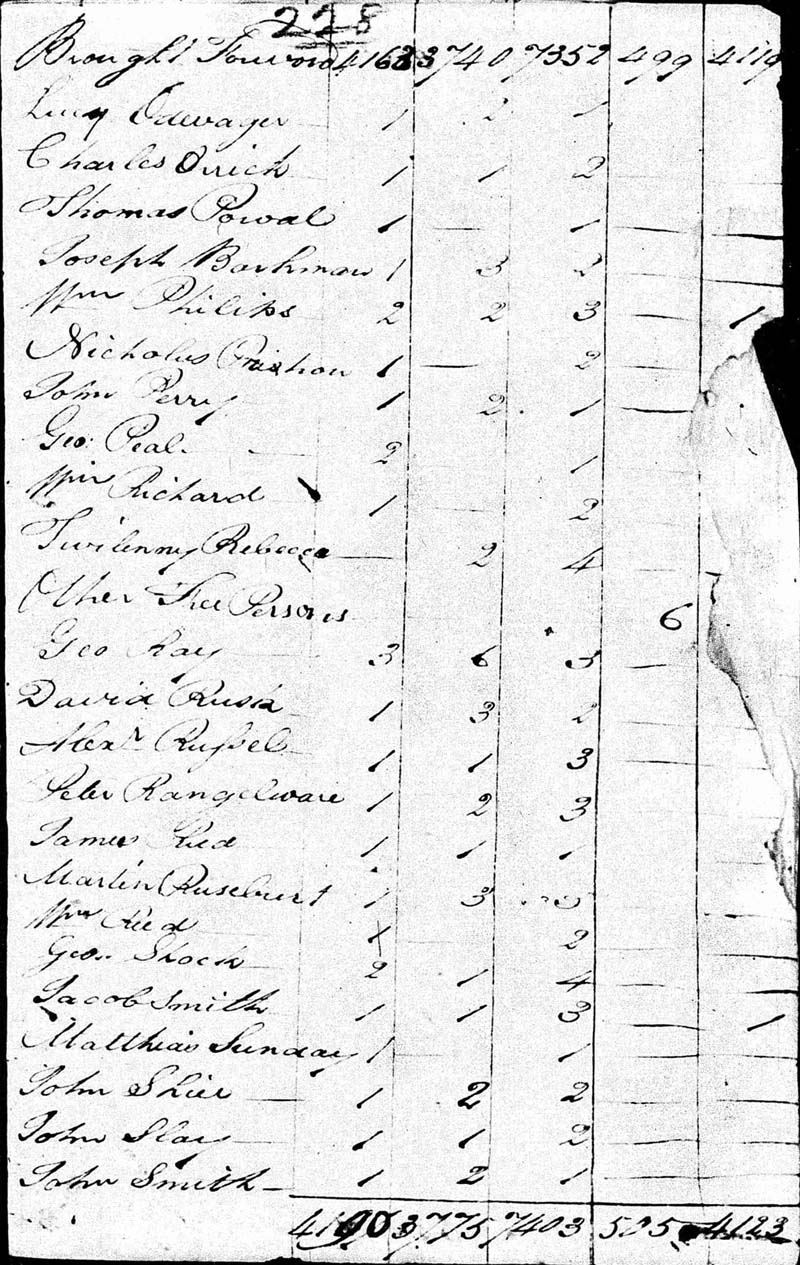 228
Brought Forword 4162 3740 7352 499 4119
Lucy Odewager 1 2 1
Charles Orrick 1 1 2
Thomas Powal 1 — 1 — —
Joseph Barhman 1 3 2 —
Wm Philips 2 2 3 — 1
Nicholas 1 — 2 —
John Perry 1 2 1 —
Geo: Peal 2 1
Wm Richard 1 — 2
Twilenny Rebecca — 2 4
Other Free Persons 6
Geo Ray 3 6 3 —
David Rusk 1 3 2
Alexr Russel 1 1 3
Peter Rangelware 1 2 3
James Reed 1 1 1
Martin 1 3
Wm Reed 1 2
Geo. Shock 2 1 4
Jacob Smith 1 1 3 — 1
Matthias Sunday 1 1 — —
John Shier 1 2 2 — —
John Slay 1 1 2 — —
John Smith 1 2 1 — —
4190 3775 7403 505 4123